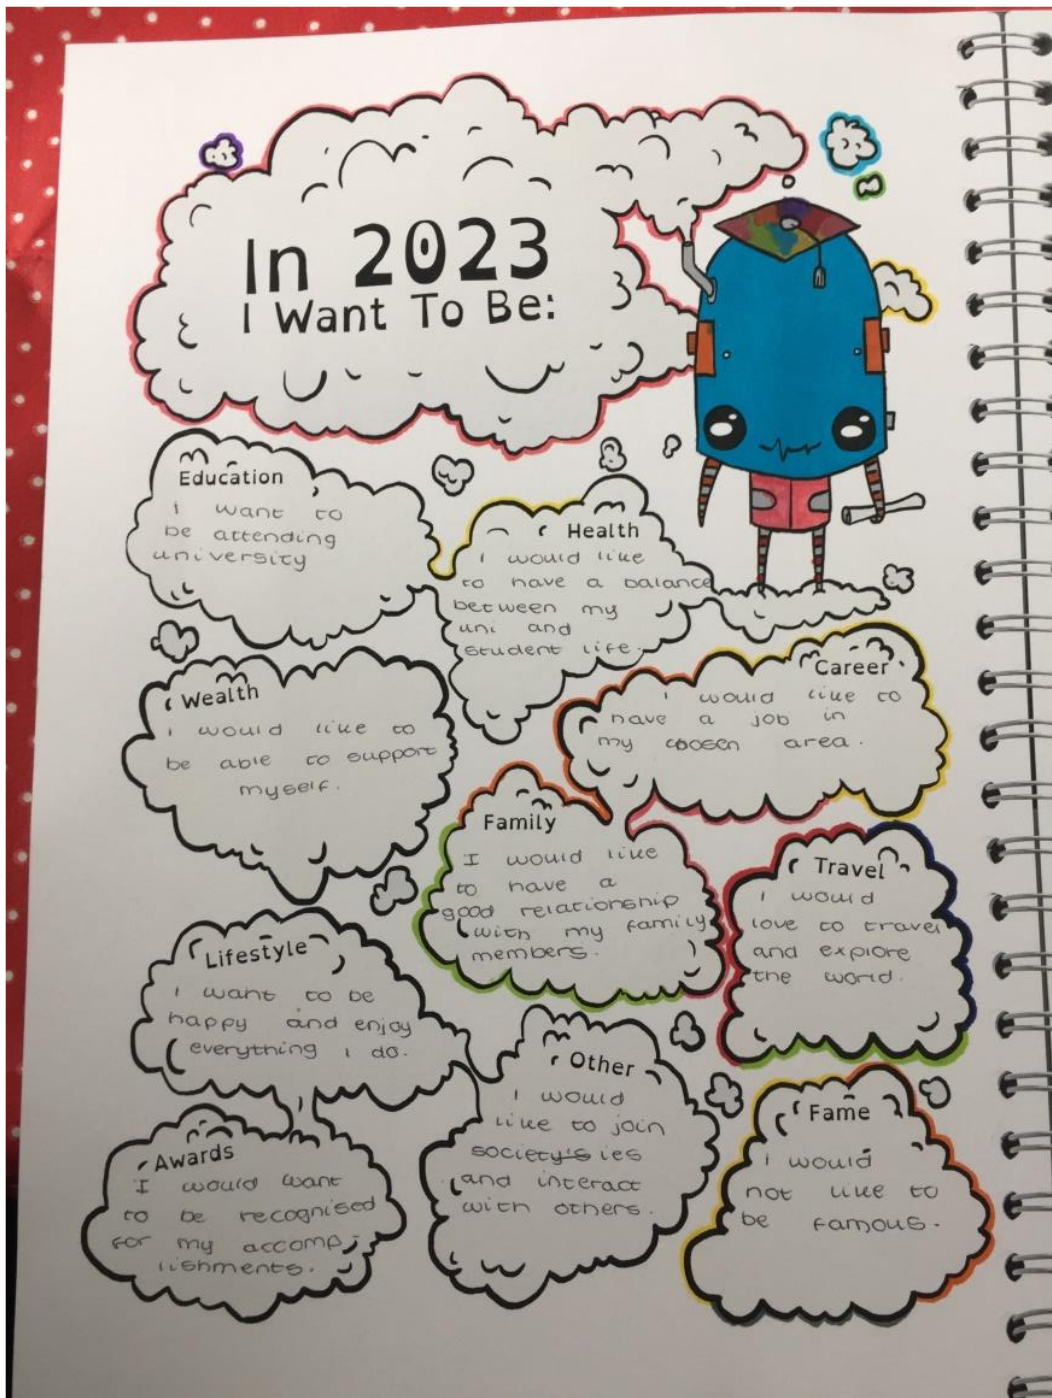 In 2023
I Want To Be:
Education
I want to
be attending
university
Health
I would like
to have a balance
between my
uni and
student life.
Wealth
I would like to
be able to support
myself.
Career
I would like to
have a job in
my coosen area.
Family
I would like
to have a
good relationship
with my family
members.
Travel
I would
love to travel
and explore
the world.
Lifestyle
I want to be
happy and enjoy
everything I do.
Other
I would
like to join
society's ies
and interact
with others.
Awards
I would want
to be recognised
for my accomp-
lishments.
Fame
I would
not like to
be famous.